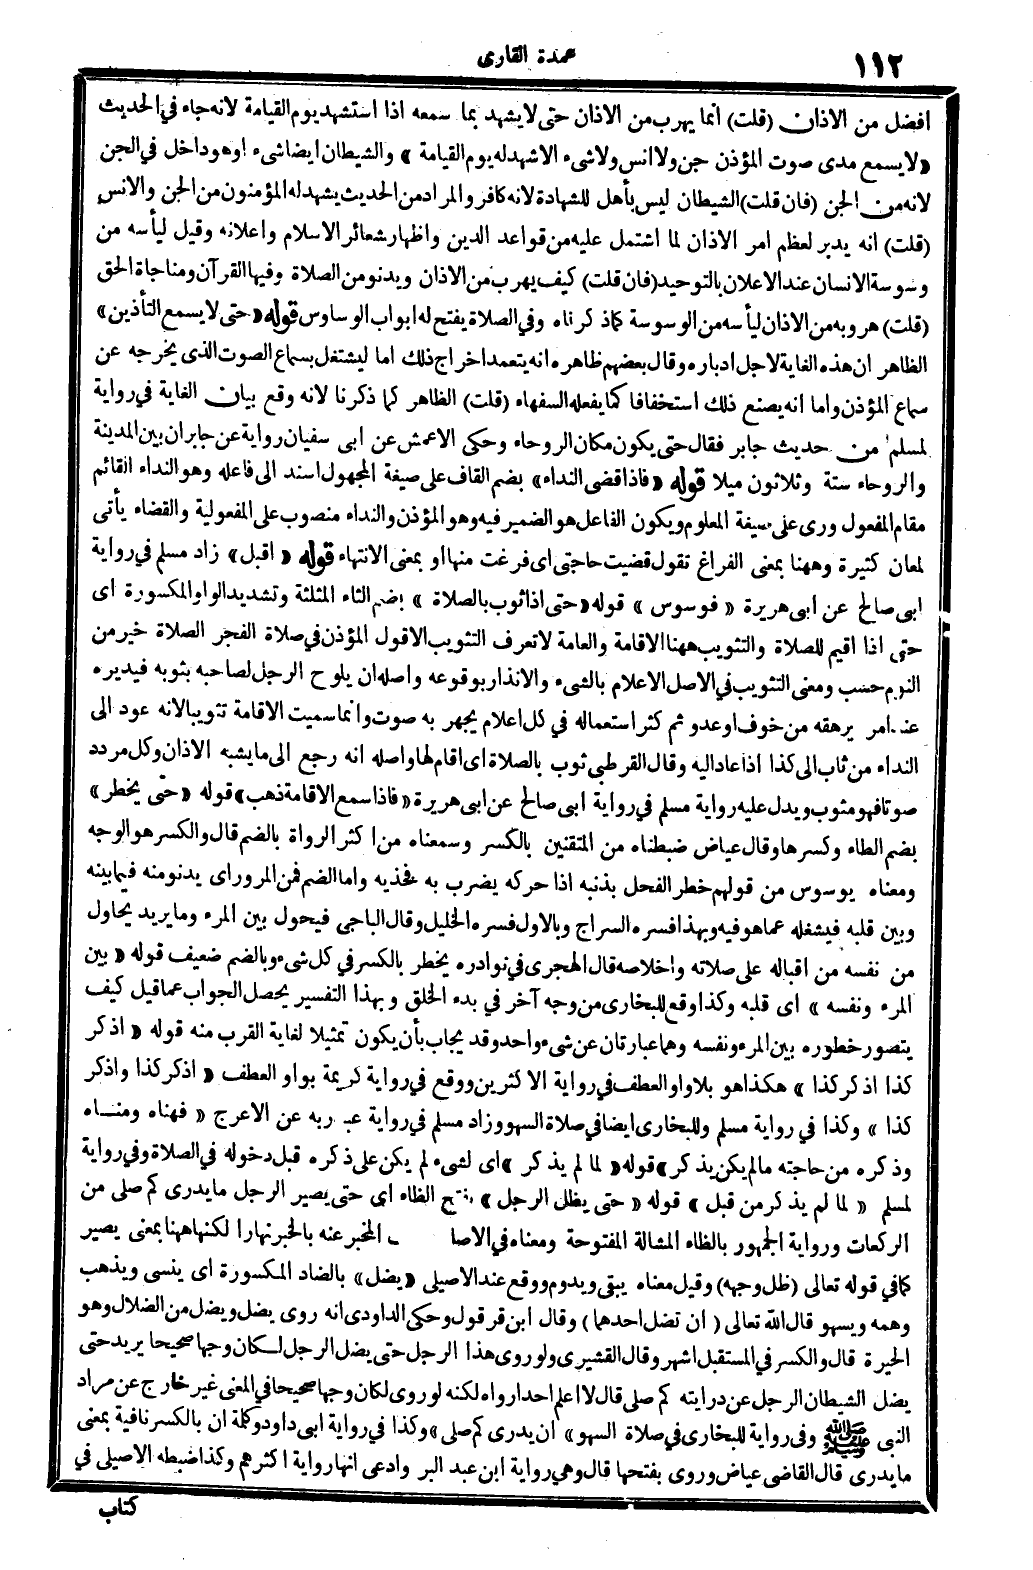 ١١٢
عمدة القارى
افضل من الاذان (قلت) انما يهرب من الاذان حتى لا يشهد بما سمعه اذا استشهد يوم القيامة لانه جاء في الحديث
«لا يسمع مدى صوت المؤذن جن ولا انس ولا شىء الا شهد له يوم القيامة» والشيطان ايضا شىء او هو داخل في الجن
لانه من الجن (فان قلت) الشيطان ليس بأهل للشهادة لانه كافر والمراد من الحديث يشهد له المؤمنون من الجن والانس
(قلت) انه يدبر لعظم امر الاذان لما اشتمل عليه من قواعد الدين واظهار شعائر الاسلام واعلانه وقيل ليأسه من
وسوسة الانسان عند الاعلان بالتوحيد (فان قلت) كيف يهرب من الاذان ويدنو من الصلاة وفيها القرآن ومناجاة الحق
(قلت) هروبه من الاذان ليأسه من الوسوسة كما ذكرناه وفي الصلاة يفتح له ابواب الوساوس قوله «حتى لا يسمع التأذين»
الظاهر ان هذه الغاية لاجل ادباره وقال بعضهم ظاهره انه يتعمد اخراج ذلك اما ليشتغل بسماع الصوت الذى يخرجه عن
سماع المؤذن واما انه يصنع ذلك استخفافا كما يفعله السفهاء (قلت) الظاهر كما ذكرنا لانه وقع بيان الغاية في رواية
لمسلم من حديث جابر فقال حتى يكون مكان الروحاء وحكى الاعمش عن ابى سفيان رواية عن جابر ان بين المدينة
والروحاء ستة وثلاثون ميلا قوله «فاذا قضى النداء» بضم القاف على صيغة المجهول اسند الى فاعله وهو النداء القائم
مقام المفعول وروى على صيغة المعلوم ويكون الفاعل هو الضمير فيه وهو المؤذن والنداء منصوب على المفعولية والقضاء يأتى
لمعان كثيرة وههنا بمعنى الفراغ تقول قضيت حاجتى اى فرغت منها او بمعنى الانتهاء قوله «اقبل» زاد مسلم في رواية
ابى صالح عن ابى هريرة «فوسوس» قوله «حتى اذا ثوب بالصلاة» بضم الثاء المثلثة وتشديد الواو المكسورة اى
حتى اذا اقيم للصلاة والتثويب ههنا الاقامة والعامة لا تعرف التثويب الا قول المؤذن في صلاة الفجر الصلاة خير من
النوم حسب ومعنى التثويب في الاصل الاعلام بالشىء والانذار بوقوعه واصله ان يلوح الرجل لصاحبه بثوبه فيديره
عند امر يرهقه من خوف او عدو ثم كثر استعماله في كل اعلام يجهر به صوت وانما سميت الاقامة تثويبا لانه عود الى
النداء من ثاب الى كذا اذا عاد اليه وقال القرطبي ثوب بالصلاة اى اقام لها واصله انه رجع الى ما يشبه الاذان وكل مردد
صوتا فهو مثوب ويدل عليه رواية مسلم في رواية ابى صالح عن ابى هريرة «فاذا سمع الاقامة ذهب» قوله «حتى يخطر»
بضم الطاء وكسرها وقال عياض ضبطناه من المتقنين بالكسر وسمعناه من اكثر الرواة بالضم قال والكسر هو الوجه
ومعناه يوسوس من قولهم خطر الفحل بذنبه اذا حركه يضرب به فخذيه واما الضم فمن المرور اى يدنو منه فيما بينه
وبين قلبه فيشغله عما هو فيه وبهذا فسره السراج وبالاول فسره الخليل وقال الباجى فيحول بين المرء وما يريد يحاول
من نفسه من اقباله على صلاته واخلاصه قال الهجرى في نوادره يخطر بالكسر في كل شىء وبالضم ضعيف قوله «بين
المرء ونفسه» اى قلبه وكذا وقع للبخارى من وجه آخر في بدء الخلق وبهذا التفسير يحصل الجواب عما قيل كيف
يتصور خطوره بين المرء ونفسه وهما عبارتان عن شىء واحد وقد يجاب بأن يكون تمثيلا لغاية القرب منه قوله «اذكر
كذا اذكر كذا» هكذا هو بلا واو العطف في رواية الاكثرين ووقع في رواية كريمة بواو العطف «اذكر كذا واذكر
كذا» وكذا في رواية مسلم وللبخارى ايضا في صلاة السهو وزاد مسلم في رواية عبد ربه عن الاعرج «فهناه ومناه
وذكره من حاجته مالم يكن يذكر» قوله «لما لم يذكر» اى لشىء لم يكن على ذكره قبل دخوله في الصلاة وفي رواية
لمسلم «لما لم يذكر من قبل» قوله «حتى يظل الرجل» بفتح الظاء اى حتى يصير الرجل ما يدرى كم صلى من
الركعات ورواية الجمهور بالظاء المشالة المفتوحة ومعناه في الاصا المخبر عنه بالخبر نهارا لكنها ههنا بمعنى يصير
كما في قوله تعالى (ظل وجهه) وقيل معناه يبقى ويدوم ووقع عند الاصيلى «يضل» بالضاد المكسورة اى ينسى ويذهب
وهمه ويسهو قال الله تعالى (ان تضل احدهما) وقال ابن قرقول وحكى الداودى انه روى يضل ويضل من الضلال وهو
الحيرة قال والكسر في المستقبل اشهر وقال القشيرى ولو روى هذا الرجل حتى يضل الرجل لكان وجها صحيحا يريد حتى
يضل الشيطان الرجل عن درايته كم صلى قال لا اعلم احدا رواه لكنه لو روى لكان وجها صحيحا في المعنى غير خارج عن مراد
النبى ﷺ وفى رواية للبخارى في صلاة السهو» ان يدرى كم صلى» وكذا في رواية ابى داود وكلمة ان بالكسر نافية بمعنى
ما يدرى قال القاضى عياض وروى بفتحها قال وهي رواية ابن عبد البر وادعى انها رواية اكثرهم وكذا ضبطه الاصيلى في
كتاب